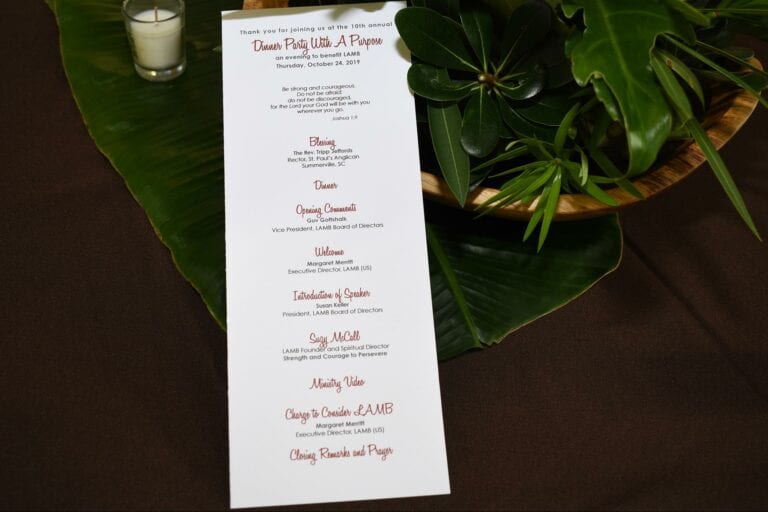 Thank you for joining us at the 10th annual
Dinner Party With A Purpose
an evening to benefit LAMB
Thursday, October 24, 2019
Be strong and courageous.
Do not be afraid;
do not be discouraged,
for the Lord your God will be with you
wherever you go.
Joshua 1:9
Blessing
The Rev. Tripp Jeffords
Rector, St. Paul's Anglican
Summerville, SC
Dinner
Opening Comments
Guy Gottshalk
Vice President, LAMB Board of Directors
Welcome
Margaret Merritt
Executive Director, LAMB (US)
Introduction of Speaker
Susan Keller
President, LAMB Board of Directors
Suzy McCall
LAMB Founder and Spiritual Director
Strength and Courage to Persevere
Ministry Video
Charge to Consider LAMB
Margaret Merritt
Executive Director, LAMB (US)
Closing Remarks and Prayer